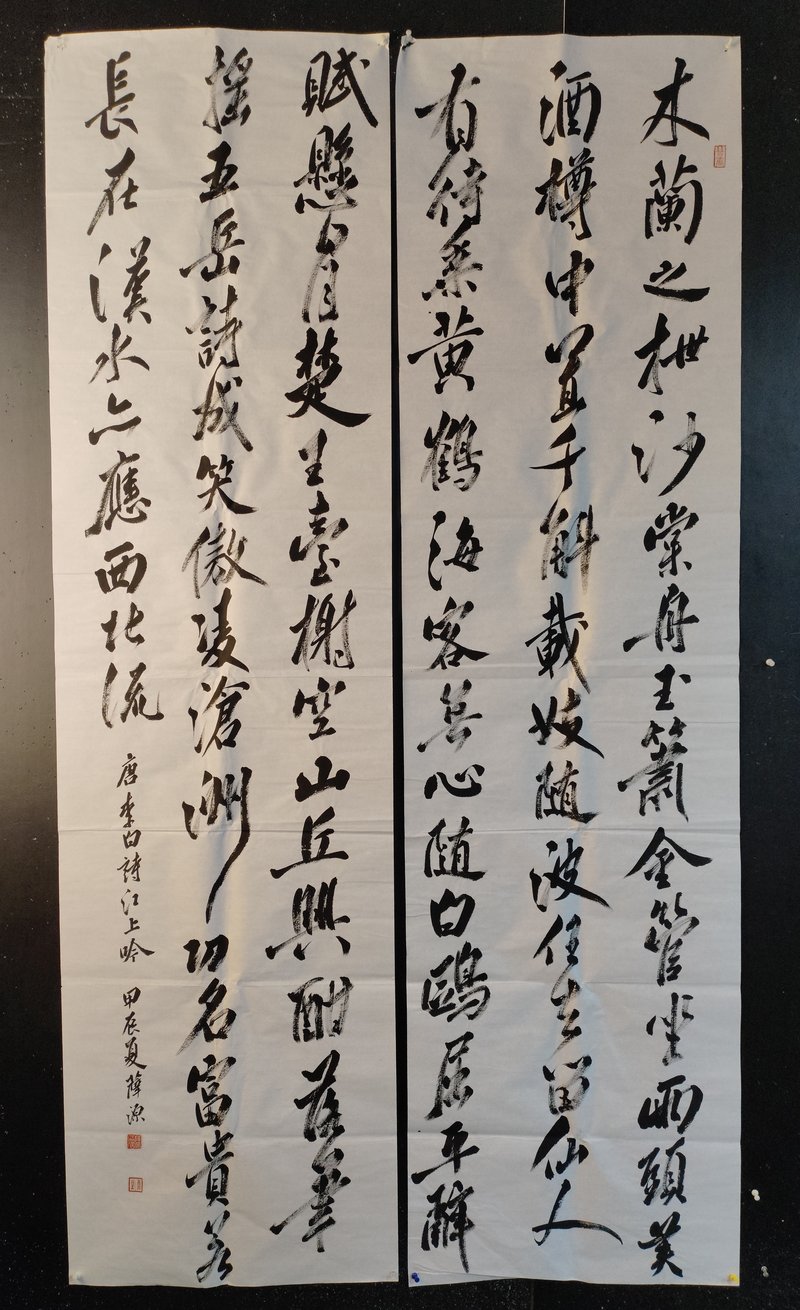 木蘭之枻沙棠舟玉簫金管坐兩頭美
酒樽中置千斛載妓随波任去留仙人
有待乘黄鶴海客無心随白鷗屈平辭
賦懸日月楚王臺榭空山丘興酣落筆
摇五岳詩成笑傲凌滄洲功名富貴若
長在漢水亦應西北流
唐李白詩江上吟 甲辰夏薛源